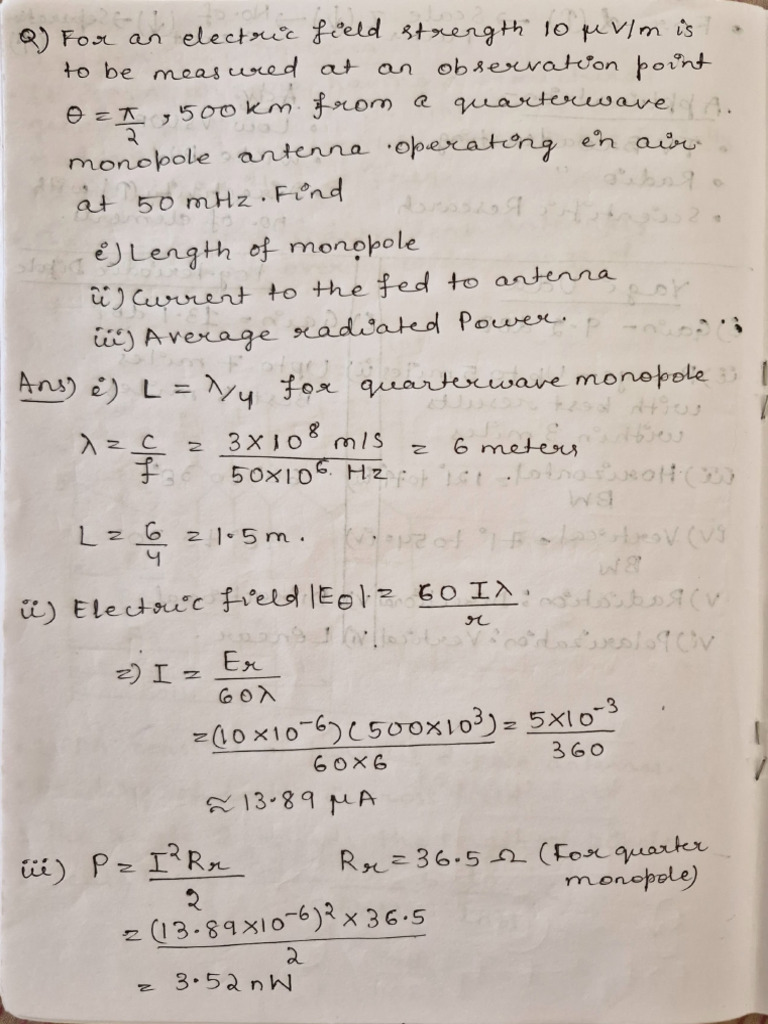 Q) For an electric field strength 10 μV/m is
to be measured at an observation point
θ = π/2, 500 km from a quarterwave
monopole antenna operating in air
at 50 mHz. Find
i) Length of monopole
ii) Current to the fed to antenna
iii) Average radiated Power.
Ans) i) L = λ/4 for quarterwave monopole
λ = c/f = 3×10⁸ m/s / 50×10⁶ Hz = 6 meters
L = 6/4 = 1.5 m.
ii) Electric field |Eθ| = 60 Iλ / r
⇒ I = Er / 60λ
= (10×10⁻⁶)(500×10³) / 60×6 = 5×10⁻³ / 360
≈ 13.89 μA
iii) P = I²Rr / 2   Rr = 36.5 Ω (For quarter
monopole)
= (13.89×10⁻⁶)² × 36.5 / 2
= 3.52 nW